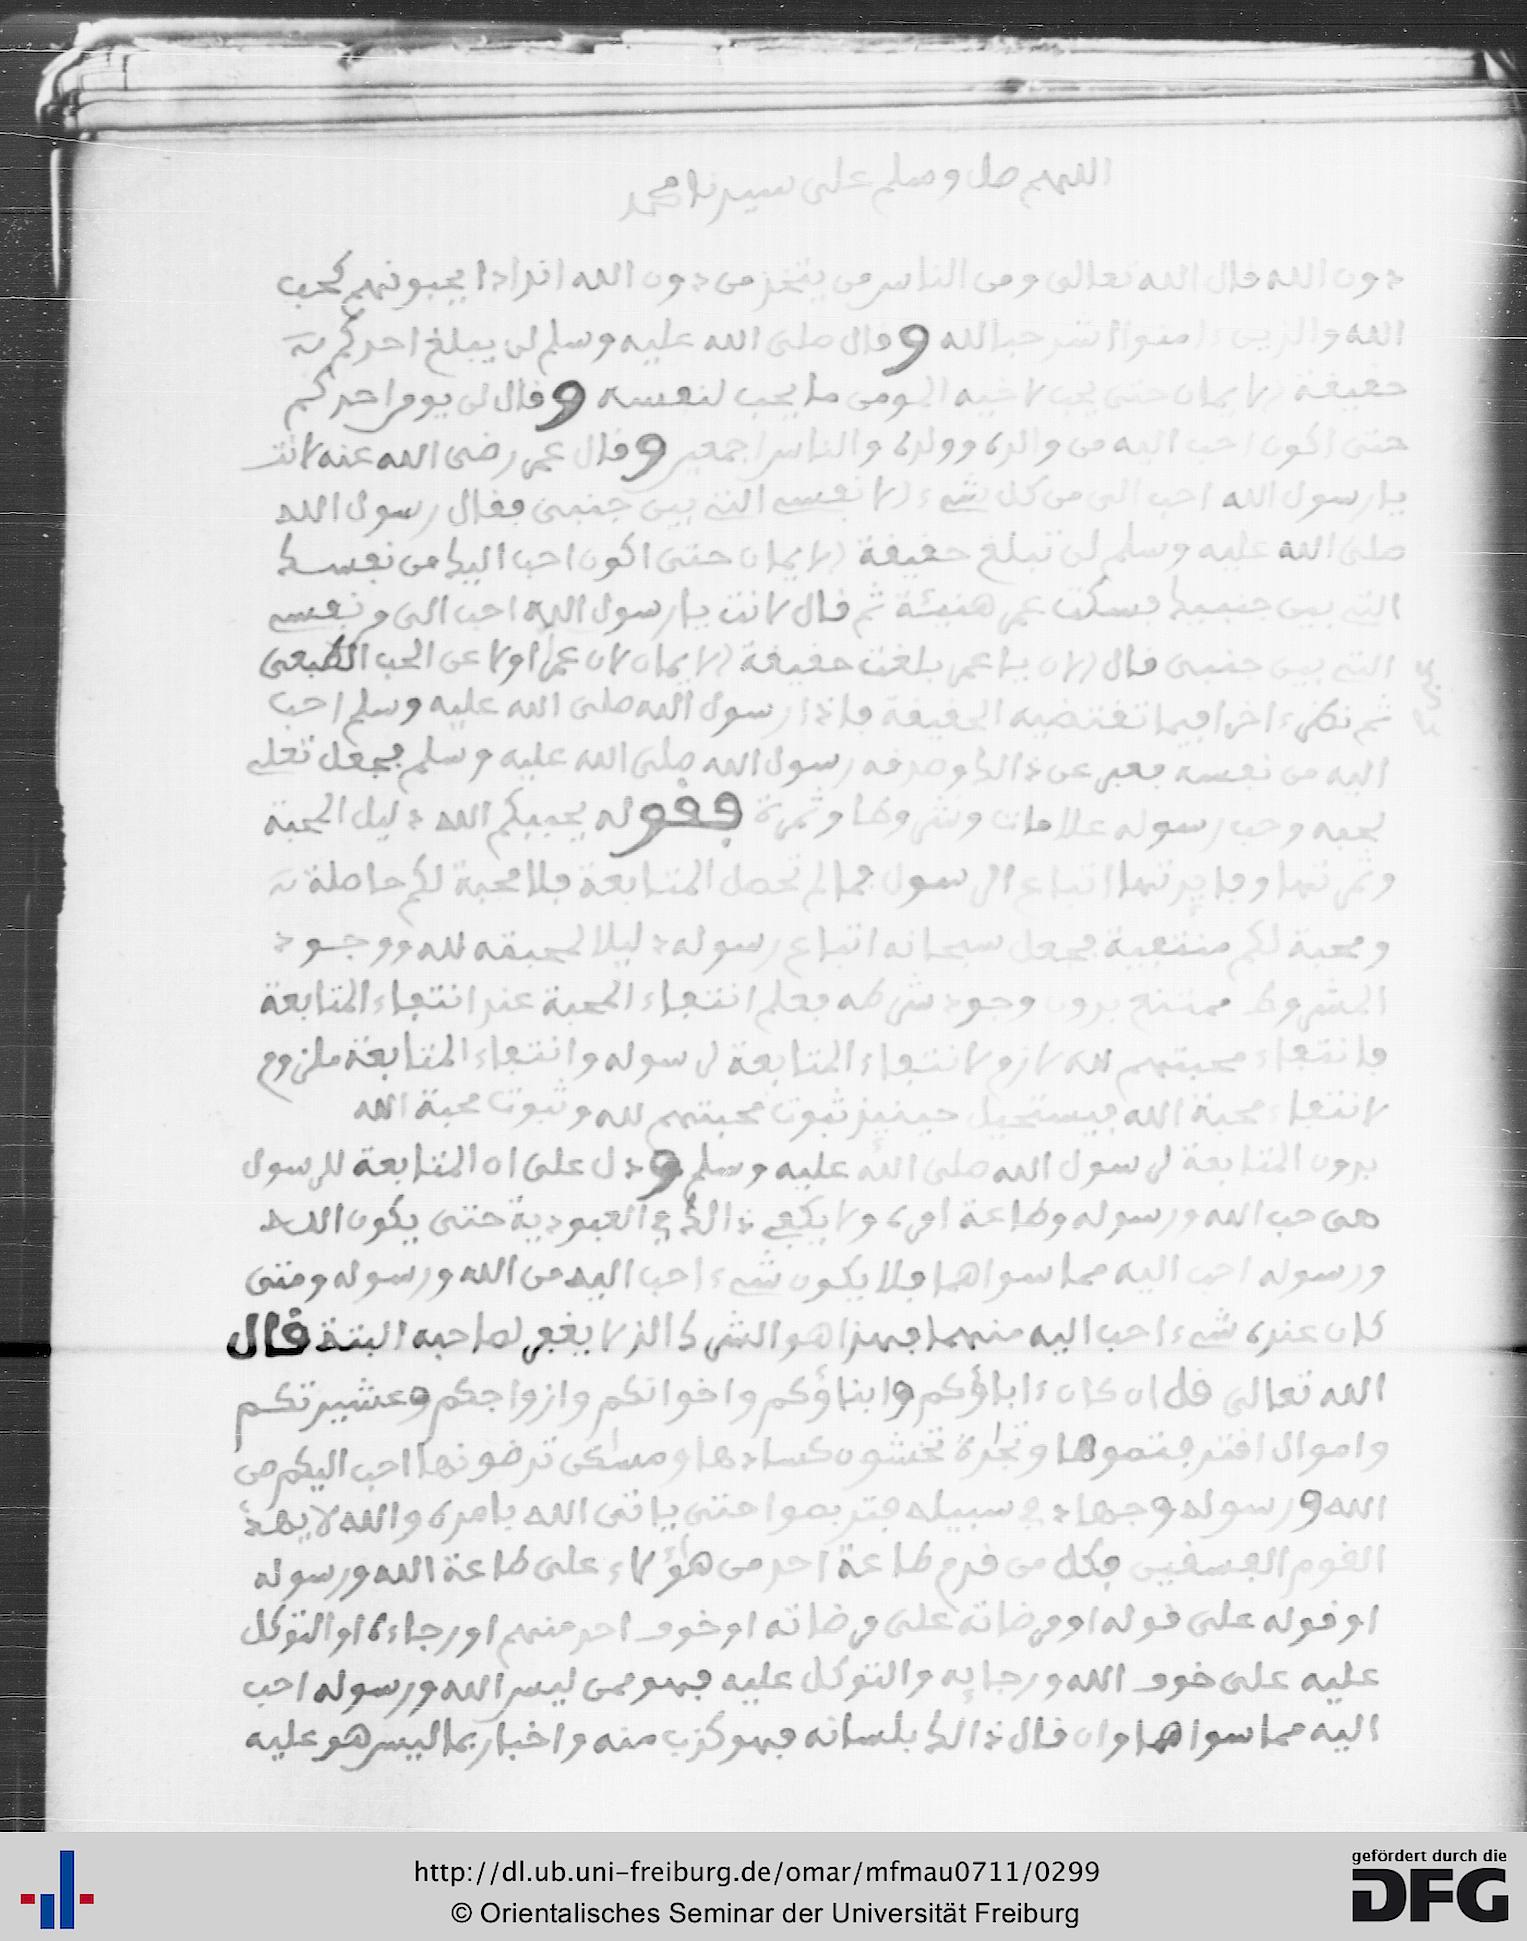 اللهم صل وسلم على سيدنا محمد
دون الله قال الله تعالى ومن الناس من يتخذ من دون الله اندادا يحبونهم كحب
الله والذين ءامنوا اشد حبا لله وقال صلى الله عليه وسلم لن يبلغ احدكم
حقيقة الايمان حتى يحب لاخيه المومن ما يحب لنفسه وقال لن يومن احدكم
حتى اكون احب اليه من والده وولده والناس اجمعين وقال عمر رضى الله عنه لانت
يا رسول الله احب الى من كل شىء الا نفسى التى بين جنبى فقال رسول الله
صلى الله عليه وسلم لن تبلغ حقيقة الايمان حتى اكون احب اليك من نفسك
التى بين جنبيك فسكت عمر هنيئة ثم قال لانت يا رسول الله احب الى من نفسى
التى بين جنبى قال الان يا عمر بلغت حقيقة الايمان لان عمر اولا عن الحب الطبعى
ثم نظر ءاخرا فيما تقتضيه الحقيقة فاذا رسول الله صلى الله عليه وسلم احب
اليه من نفسه فعبر عن ذالك وصدقه رسول الله صلى الله عليه وسلم فجعل تعلى
لحبه وحب رسوله علامات وشروطا وثمرة فقوله يحببكم الله دليل المحبة
وثمرتها وفايدتها اتباع الرسول فما لم تحصل المتابعة فلا محبة لكم حاصلة
ومحبة لكم منتفية فجعل سبحانه اتباع رسوله دليلا لمحبته لله ووجود
المشروط ممتنع بدون وجود شرطه فعلم انتفاء المحبة عند انتفاء المتابعة
فانتفاء محبتهم لله لازم لانتفاء المتابعة لرسوله وانتفاء المتابعة ملزوم
لانتفاء محبة الله فيستحيل حينيذ ثبوت محبتهم لله وثبوت محبة الله
بدون المتابعة لرسول الله صلى الله عليه وسلم ودل على ان المتابعة للرسول
هى حب الله ورسوله وطاعة امره ولا يكفى ذالك فى العبودية حتى يكون الله
ورسوله احب اليه مما سواهما فلا يكون شىء احب اليه من الله ورسوله ومتى
كان عنده شىء احب اليه منهما فهذا هو الشرك الذ لا يغفر لصاحبه البتة قال
الله تعالى قل ان كان ءاباؤكم وابناؤكم واخوانكم وازواجكم وعشيرتكم
واموال اقترفتموها وتجرة تخشون كسادها ومسكن ترضونها احب اليكم من
الله ورسوله وجهاد فى سبيله فتربصوا حتى ياتى الله بامره والله لا يهدى
القوم الفسقين فكل من قدم طاعة احد من هؤلاء على طاعة الله ورسوله
او قوله على قوله او مرضاته على مرضاته او خوف احد منهم او رجاءه او التوكل
عليه على خوف الله ورجايه والتوكل عليه فهو ممن ليس الله ورسوله احب
اليه مما سواهما وان قال ذالك بلسانه فهو كذب منه واخبار بما ليس هو عليه
http://dl.ub.uni-freiburg.de/omar/mfmau0711/0299
© Orientalisches Seminar der Universität Freiburg
gefördert durch die
DFG